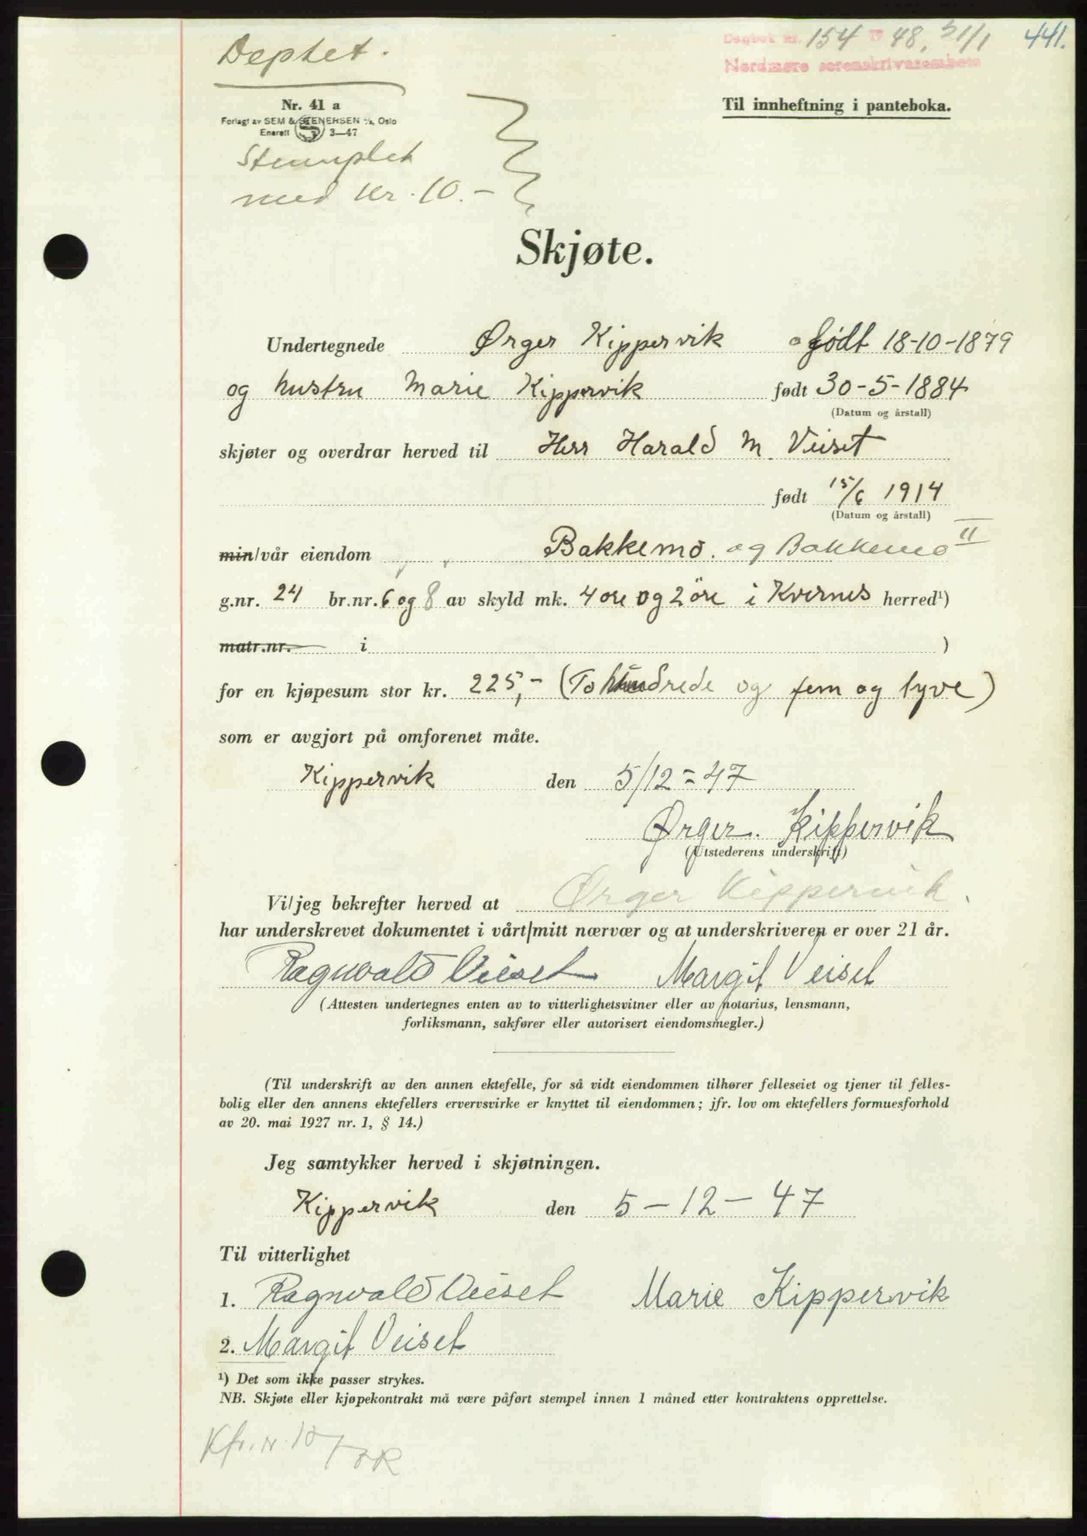 Deptet.
Dagbok nr. 154 19 48, 31/1 441.
Nordmøre sorenskriverembete
Nr. 41 a
Til innheftning i panteboka.
Forlagt av SEM & STENERSEN A/s, Oslo
Enerett 3—47
Stemplet
med kr. 10.-
Skjøte.
Undertegnede Ørger Kippervik født 18-10-1879
og hustru Marie Kippervik født 30-5-1884
(Datum og årstall)
skjøter og overdrar herved til Herr Harald M. Veiset
født 15/6 1914
(Datum og årstall)
min/vår eiendom Bakkemo. og Bakkemo II
g.nr. 24 br.nr. 6 og 8 av skyld mk. 4 øre og 2 öre i Kvernes herred¹)
matr.nr. i )
for en kjøpesum stor kr. 225,- (To hundrede og fem og tyve)
som er avgjort på omforenet måte.
Kippervik den 5/12-47
Ørger. Kippervik
(Utstederens underskrift)
Vi/jeg bekrefter herved at Ørger Kippervik.
har underskrevet dokumentet i vårt/mitt nærvær og at underskriveren er over 21 år.
Ragnvald Veiset Margit Veiset
(Attesten undertegnes enten av to vitterlighetsvitner eller av notarius, lensmann,
forliksmann, sakfører eller autorisert eiendomsmegler.)
(Til underskrift av den annen ektefelle, for så vidt eiendommen tilhører felleseiet og tjener til felles-
bolig eller den annens ektefellers ervervsvirke er knyttet til eiendommen; jfr. lov om ektefellers formuesforhold
av 20. mai 1927 nr. 1, § 14.)
Jeg samtykker herved i skjøtningen.
Kippervik den 5-12-47
Til vitterlighet
1. Ragnvald Veiset Marie Kippervik
2. Margit Veiset
¹) Det som ikke passer strykes.
NB. Skjøte eller kjøpekontrakt må være påført stempel innen 1 måned etter kontraktens opprettelse.